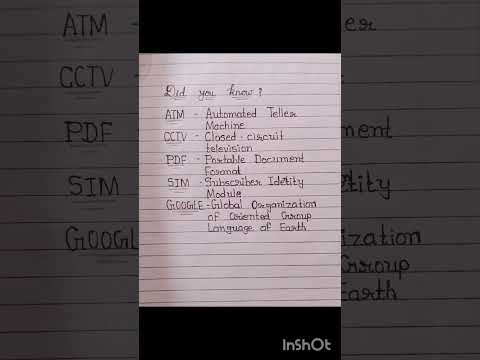 Did you know?
ATM - Automated Teller
Machine
CCTV - Closed-circuit
television
PDF - Portable Document
Format
SIM - Subscriber Idetity
Module
GOOGLE - Global Organization
of Oriented Group
Language of Earth
ATM
CCTV
PDF
SIM
GOOGL
ument
tity
ization
Group
Earth
InShOt